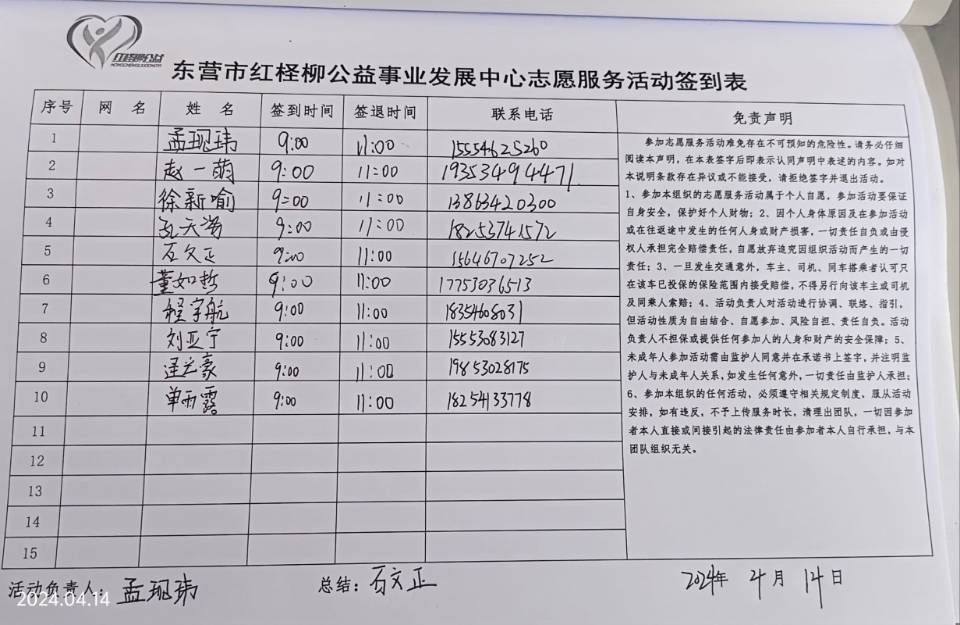 红柽柳公益
东营市红柽柳公益事业发展中心志愿服务活动签到表
序号 网 名 姓 名 签到时间 签退时间 联系电话 免责声明
1 孟现玮 9:00 11:00 15554625260
2 赵一萌 9:00 11:00 19353494471
3 徐新喻 9:00 11:00 13863420300
4 9:00 11:00 18253741572
5 石文正 9:00 11:00 15646707252
6 董如哲 9:00 11:00 17753036513
7 程宇航 9:00 11:00 1835468031
8 刘亚宁 9:00 11:00 15553083127
9 9:00 11:00 19853028175
10 单雨露 9:00 11:00 18254133778
11
12
13
14
15
参加志愿服务活动难免存在不可预知的危险性。请务必仔细
阅读本声明，在本表签字后即表示认同声明中表述的内容。如对
本说明条款存在异议或不能接受，请拒绝签字并退出活动。
1、参加本组织的志愿服务活动属于个人自愿，参加活动要保证
自身安全，保护好个人财物；2、因个人身体原因及在参加活动
或在往返途中发生的任何人身或财产损害，一切责任自负或由侵
权人承担完全赔偿责任，自愿放弃追究因组织活动而产生的一切
责任；3、一旦发生交通意外，车主、司机、同车搭乘者认可只
在该车已投保的保险范围内接受赔偿，不得另行向该车主或司机
及同乘人索赔；4、活动负责人对活动进行协调、联络、指引，
但活动性质为自由结合、自愿参加、风险自担、责任自负。活动
负责人不担保或提供任何参加人的人身和财产的安全保障；5、
未成年人参加活动需由监护人同意并在承诺书上签字，并注明监
护人与未成年人关系，如发生任何意外，一切责任由监护人承担；
6、参加本组织的任何活动，必须遵守相关规定制度，服从活动
安排，如有违反，不予上传服务时长，清理出团队，一切因参加
者本人直接或间接引起的法律责任由参加者本人自行承担，与本
团队组织无关。
活动负责人：孟现玮 总结：石文正 2024年 4月 14日
2024.04.14